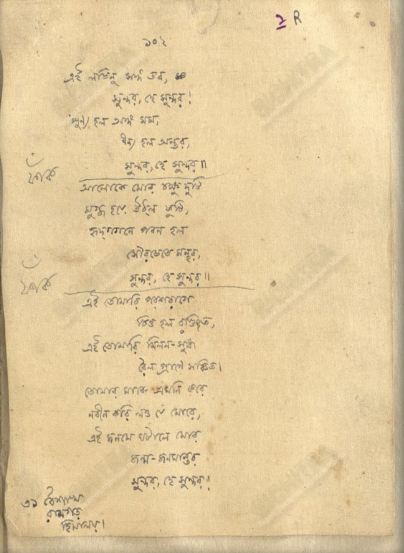 2 R
১০২
এই লভিনু সঙ্গ তব,
সুন্দর, হে সুন্দর!
পুণ্য হল অঙ্গ মম,
ধন্য হল অন্তর,
সুন্দর, হে সুন্দর॥
ফাঁক
আলোকে মোর চক্ষুদুটি
মুগ্ধ হয়ে উঠল ফুটি,
হৃদ্‌গগনে পবন হল
সৌরভেতে মন্থর,
সুন্দর, হে সুন্দর॥
ফাঁক
এই তোমারি পরশরাগে
চিত্ত হল রঞ্জিত,
এই তোমারি মিলন-সুধা
রৈল প্রাণে সঞ্চিত।
তোমার মাঝে এমনি করে
নবীন করি লও যে মোরে,
এই জনমে ঘটালে মোর
জন্ম-জনমান্তর
সুন্দর, হে সুন্দর!
৩১ বৈশাখ
রামগড়
হিমালয়।